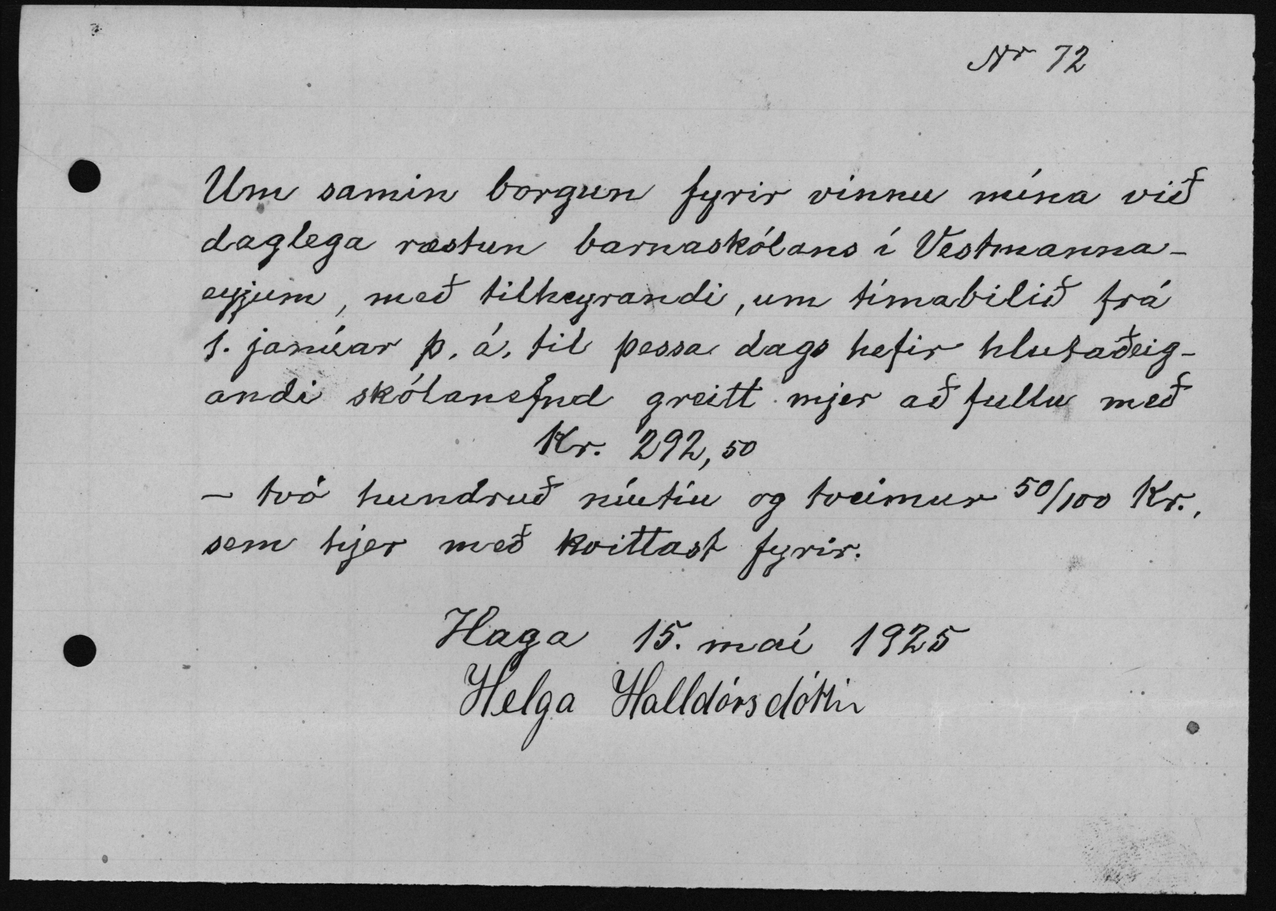 Nr 72
Um samin borgun fyrir vinnu mína við
daglega ræstun barnaskólans í Vestmanna-
eyjum, með tilheyrandi, um tímabilið frá
1. janúar þ. á. til þessa dags hefir hlutaðeig-
andi skólanefnd greitt mjer að fullu með
Kr. 292,50
- tvö hundruð níutíu og tveimur 50/100 Kr.,
sem hjer með kvittast fyrir.
Haga 15. maí 1925
Helga Halldórsdóttir